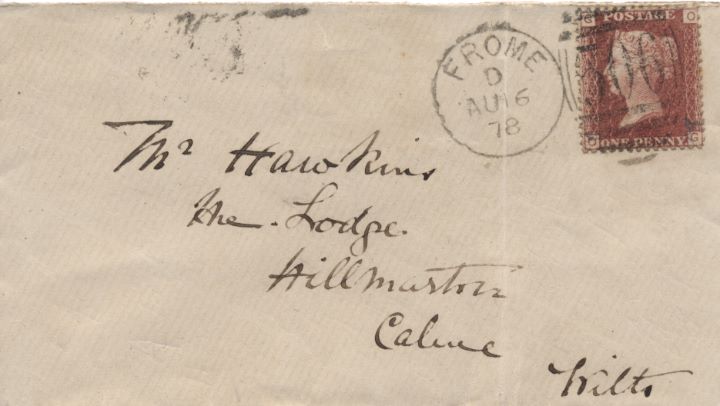 FROME
D
AU 16
78
G POSTAGE O
O ONE PENNY G
Mr Hawkins
the Lodge
Hillmarton
Calne
Wilts